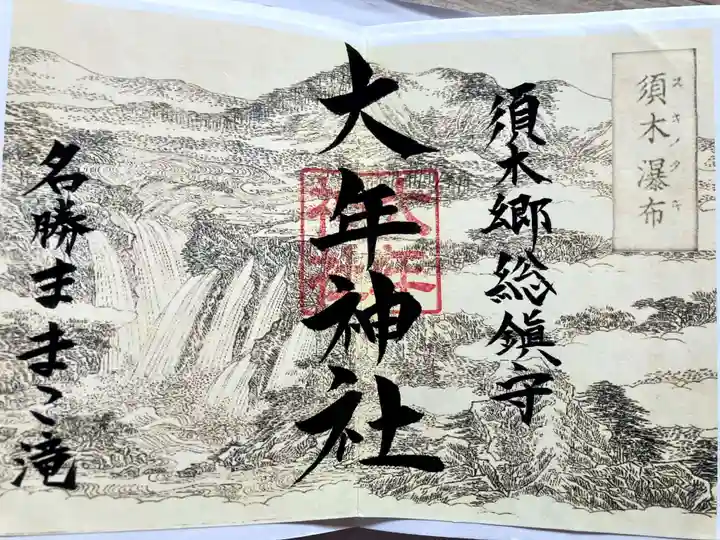 須木瀑布
スキノタキ
須木郷総鎮守
大年神社
大年神社
名勝ままこ滝